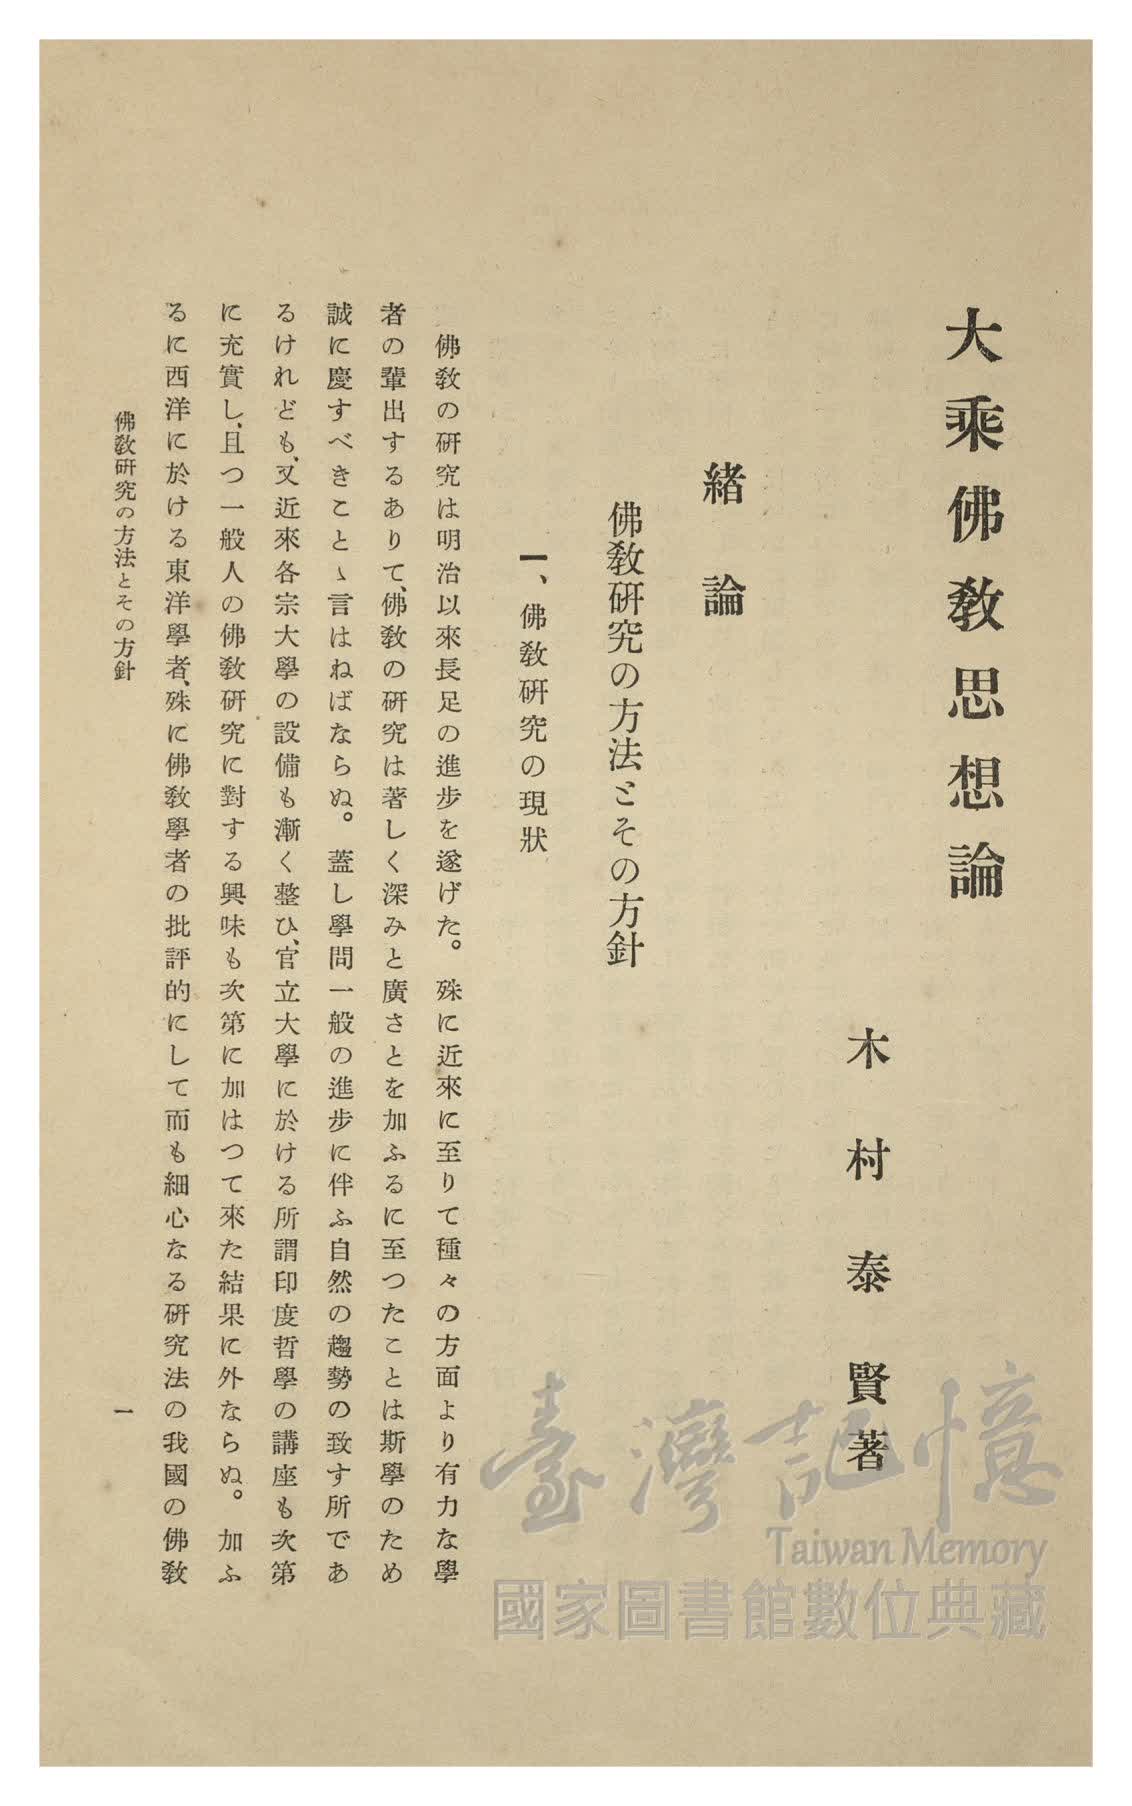 大乘佛教思想論
木村泰賢著
緒論
佛教硏究の方法とその方針
一、佛教硏究の現狀
佛教の硏究は明治以來長足の進步を遂げた。殊に近來に至りて種々の方面より有力な學
者の輩出するありて、佛教の硏究は著しく深みと廣さとを加ふるに至つたことは斯學のため
誠に慶すべきことゝ言はねばならぬ。蓋し學問一般の進步に伴ふ自然の趨勢の致す所であ
るけれども、又近來各宗大學の設備も漸く整ひ、官立大學に於ける所謂印度哲學の講座も次第
に充實し、且つ一般人の佛教硏究に對する興味も次第に加はつて來た結果に外ならぬ。加ふ
るに西洋に於ける東洋學者、殊に佛教學者の批評的にして而も細心なる硏究法の我國の佛教
佛教硏究の方法とその方針
一
臺灣記憶
Taiwan Memory
國家圖書館數位典藏